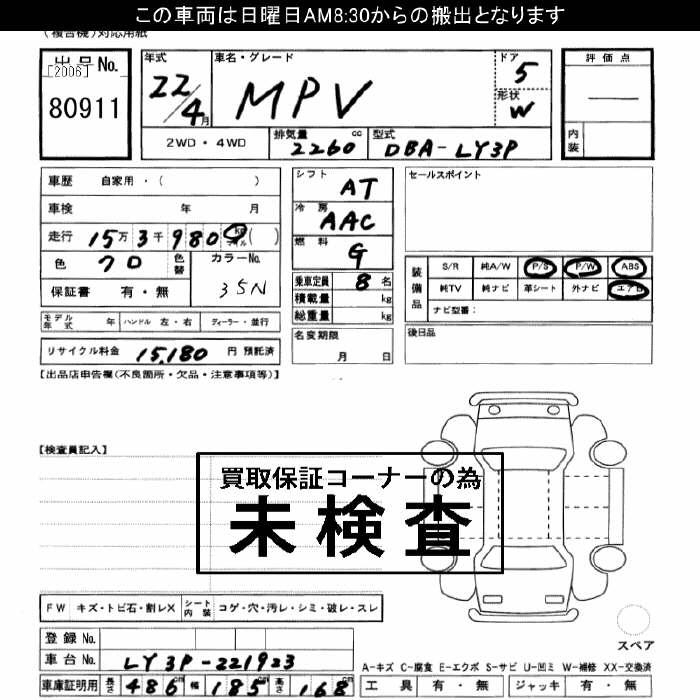 この車両は日曜日AM8:30からの搬出となります
(複合機)対応用紙
出品No.
[2006]
80911
年式
22/4月
車名・グレード
MPV
ドア
5
形状
W
2WD・4WD
排気量
2260cc
型式
DBA-LY3P
評価点
—
内装
車歴 自家用・( )
車検 年 月
走行 15万3千980 km マイル ( )
色 クロ 色替
カラーNo.
35N
保証書 有・無
モデル年式 年 ハンドル 左・右 ディーラー・並行
リサイクル料金 15,180 円 預託済
シフト
AT
冷房
AAC
燃料
G
乗車定員 8名
積載量 kg
総重量 kg
名変期限
月 日
セールスポイント
装備品
S/R 純A/W P/S P/W ABS
純TV 純ナビ 革シート 外ナビ エアB
ナビ型番:
後日品
【出品店申告欄(不良箇所・欠品・注意事項等)】
【検査員記入】
買取保証コーナーの為
未検査
FW キズ・トビ石・割レX シート内装 コゲ・穴・汚レ・シミ・破レ・スレ
登録No.
車台No. LY3P-221923
車庫証明用 長さ 486cm 幅 185cm 高さ 168cm
スペア
A-キズ C-腐食 E-エクボ S-サビ U-凹ミ W-補修 XX-交換済
工具 有・無 ジャッキ 有・無